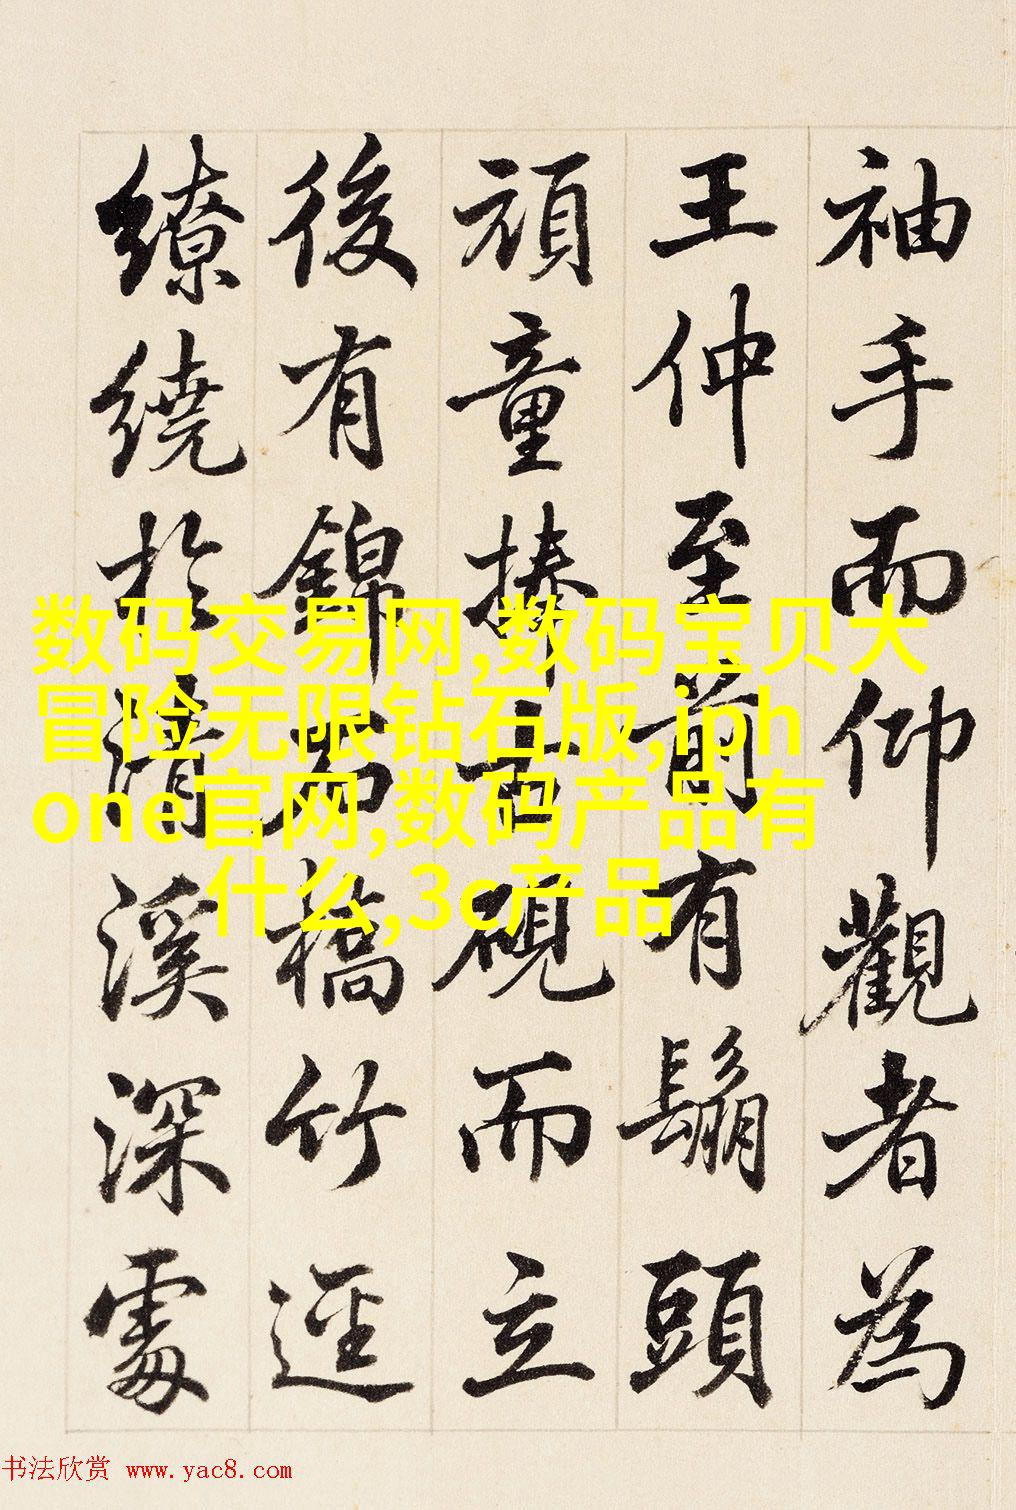 袖手而仰觀者為
王仲至前有鬅頭
頑童捧古硯而立
後有錦石橋竹逕
繚繞於清溪深處
数码交易网,数码宝贝大
冒险无限钻石版,iph
one官网,数码产品有
什么,3c产品
书法欣赏 www.yac8.com